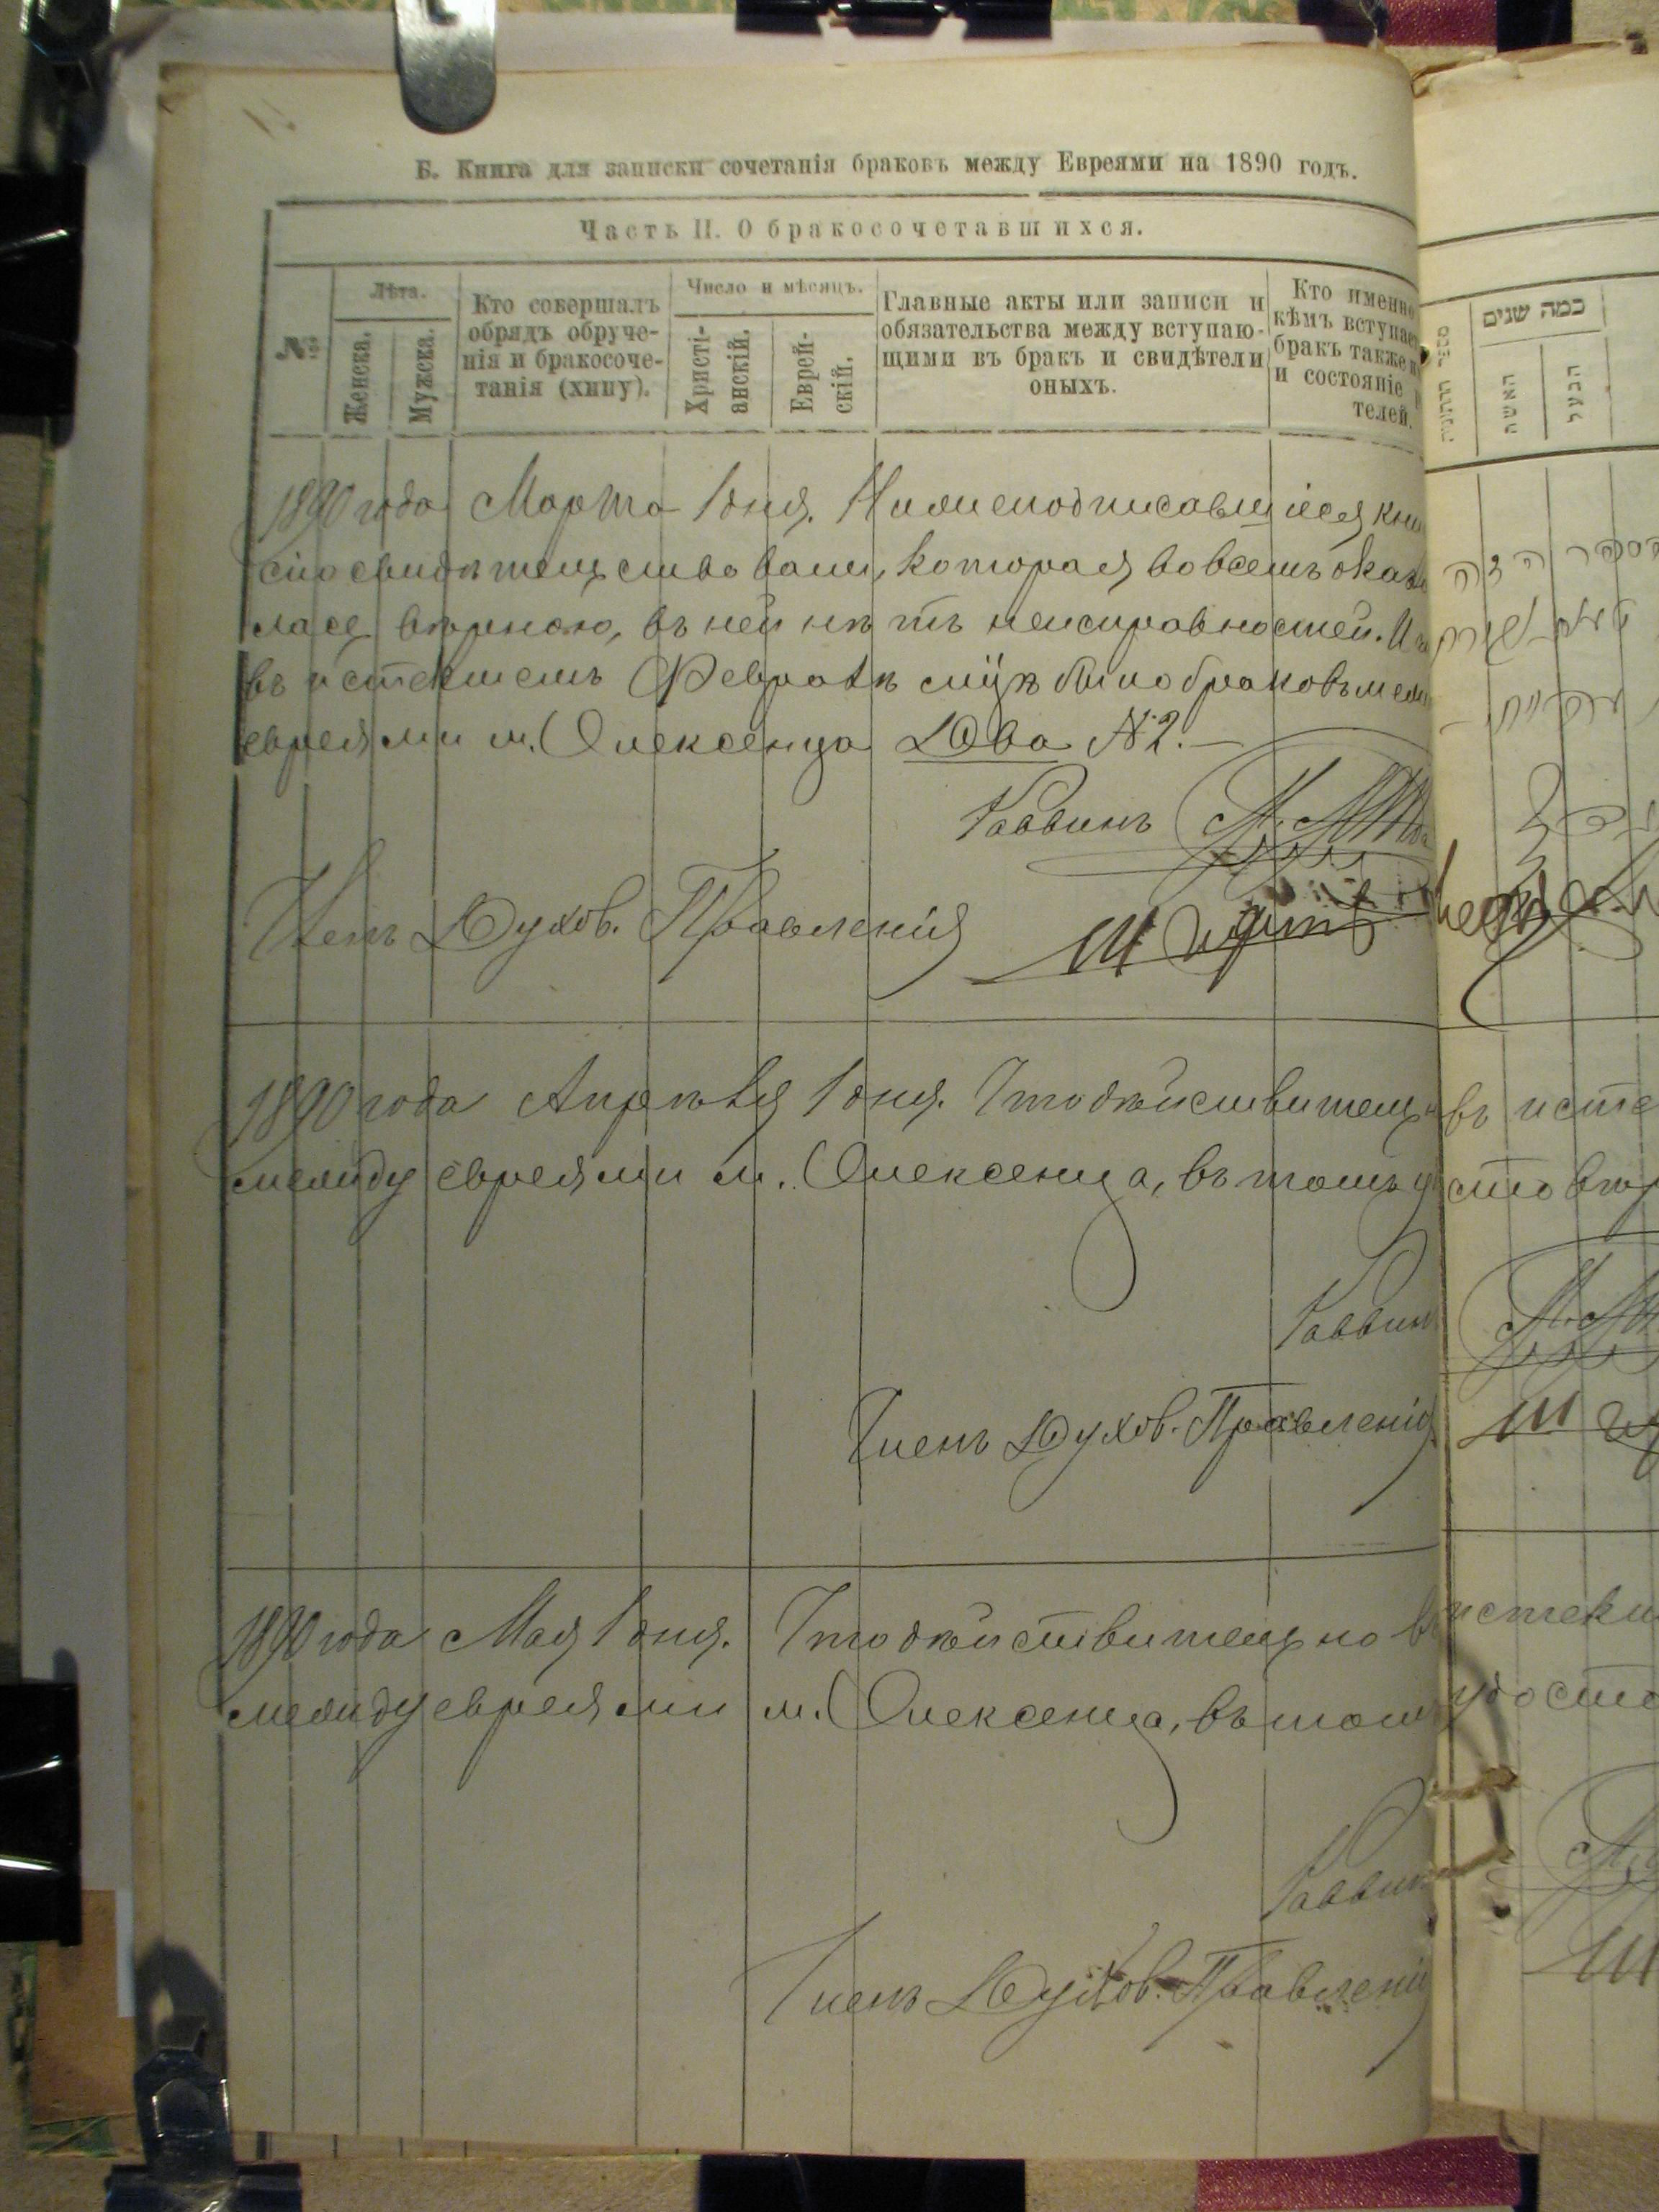 Б. Книга для записки сочетанія браковъ между Евреями на 1890 годъ.
Часть II. О бракосочетавшихся.
№№
Лѣта.
Женска.
Мужска.
Кто совершалъ
обрядъ обруче-
нія и бракосоче-
танія (хипу).
Число и мѣсяцъ.
Христі-
анскій.
Еврей-
скій.
Главные акты или записи и
обязательства между вступаю-
щими въ бракъ и свидѣтели
оныхъ.
Кто именно
кѣмъ вступае
бракъ также
и состояніе
телей.
כמה שנים
האשה
הבעל
1890 года Марта 1 дня. Нижеподписавшіеся кни
сію свидѣтельствовали, которая во всемъ оказа
лась вѣрною, въ ней нѣтъ неисправностей. И
въ истекшемъ Февралѣ м-цѣ было браковъ меж
евреями м. Олексенца Два №2.—
Раввинъ
Членъ Духов. Правленія
1890 года Апрѣля 1 дня. Что дѣйствительн въ исте
между евреями м. Олексенца, въ томъ у стовѣр
Раввин
Членъ Духов. Правленія
1890 года Мая 1 дня. Что дѣйствительно въ истекш
между евреями м. Олексенца, въ томъ удосто
Раввин
Членъ Духов. Правлені